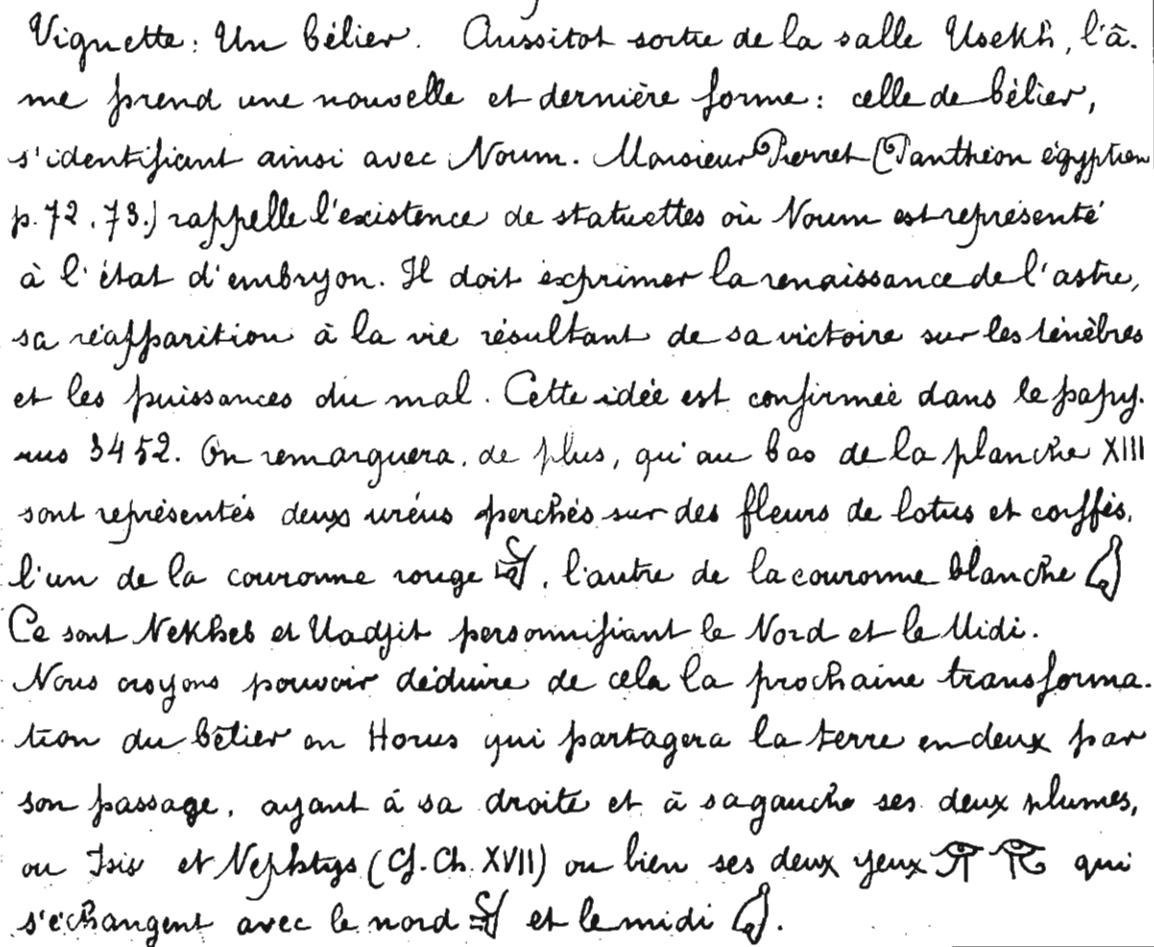 Vignette: Un bélier. Aussitot sortie de la salle Usekh, l'â-
me prend une nouvelle et dernière forme: celle de bélier,
s'identifiant ainsi avec Noum. Monsieur Pierret (Panthéon égyptien
p. 72, 73.) rappelle l'existence de statuettes où Noum est représenté
à l'état d'embryon. Il doit exprimer la renaissance de l'astre,
sa réapparition à la vie résultant de sa victoire sur les ténèbres
et les puissances du mal. Cette idée est confirmée dans le papy-
rus 3452. On remarquera, de plus, qu'au bas de la planche XIII
sont représentés deux uréus perchés sur des fleurs de lotus et coiffés,
l'un de la couronne rouge 𓋔, l'autre de la couronne blanche 𓋑
Ce sont Nekheb et Uadjit personnifiant le Nord et le Midi.
Nous croyons pouvoir déduire de cela la prochaine transforma-
tion du bélier en Horus qui partagera la terre en deux par
son passage, ayant à sa droite et à sa gauche ses deux plumes,
ou Isis et Nephtys (Cf. Ch. XVII) ou bien ses deux yeux 𓂀 𓂀 qui
s'échangent avec le nord 𓋔 et le midi 𓋑.